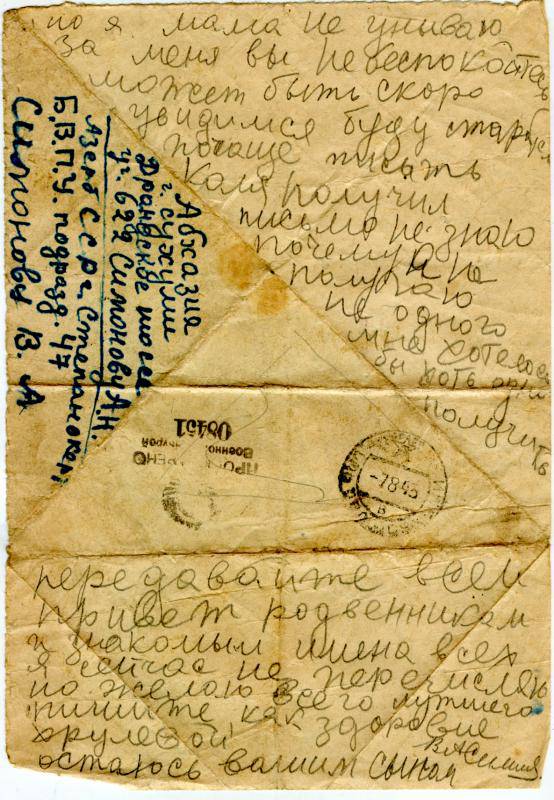 но я мама не унываю
За меня вы не беспокойтесь
может быть скоро
увидимся буду старатся
почаще писать
Коля получил
письмо не знаю
почему я не
получаю
не одного
мне хотелось
бы хоть одно
получить
Абхазия
г. Сухуми
Драндское шоссе
уч. 629 Симонову А Н.
Азерб С С Р г. Степанокерт
Б. В. П. У. подразд. 47
Симонову В. А
08451
Военно
-7.8.45
передавайте всем
привет родвенникам
и знакомым имена всех
я сейчас не перечисляю
но желаю всего лутшего
пишите, как здоровие
остаюсь вашим сыном